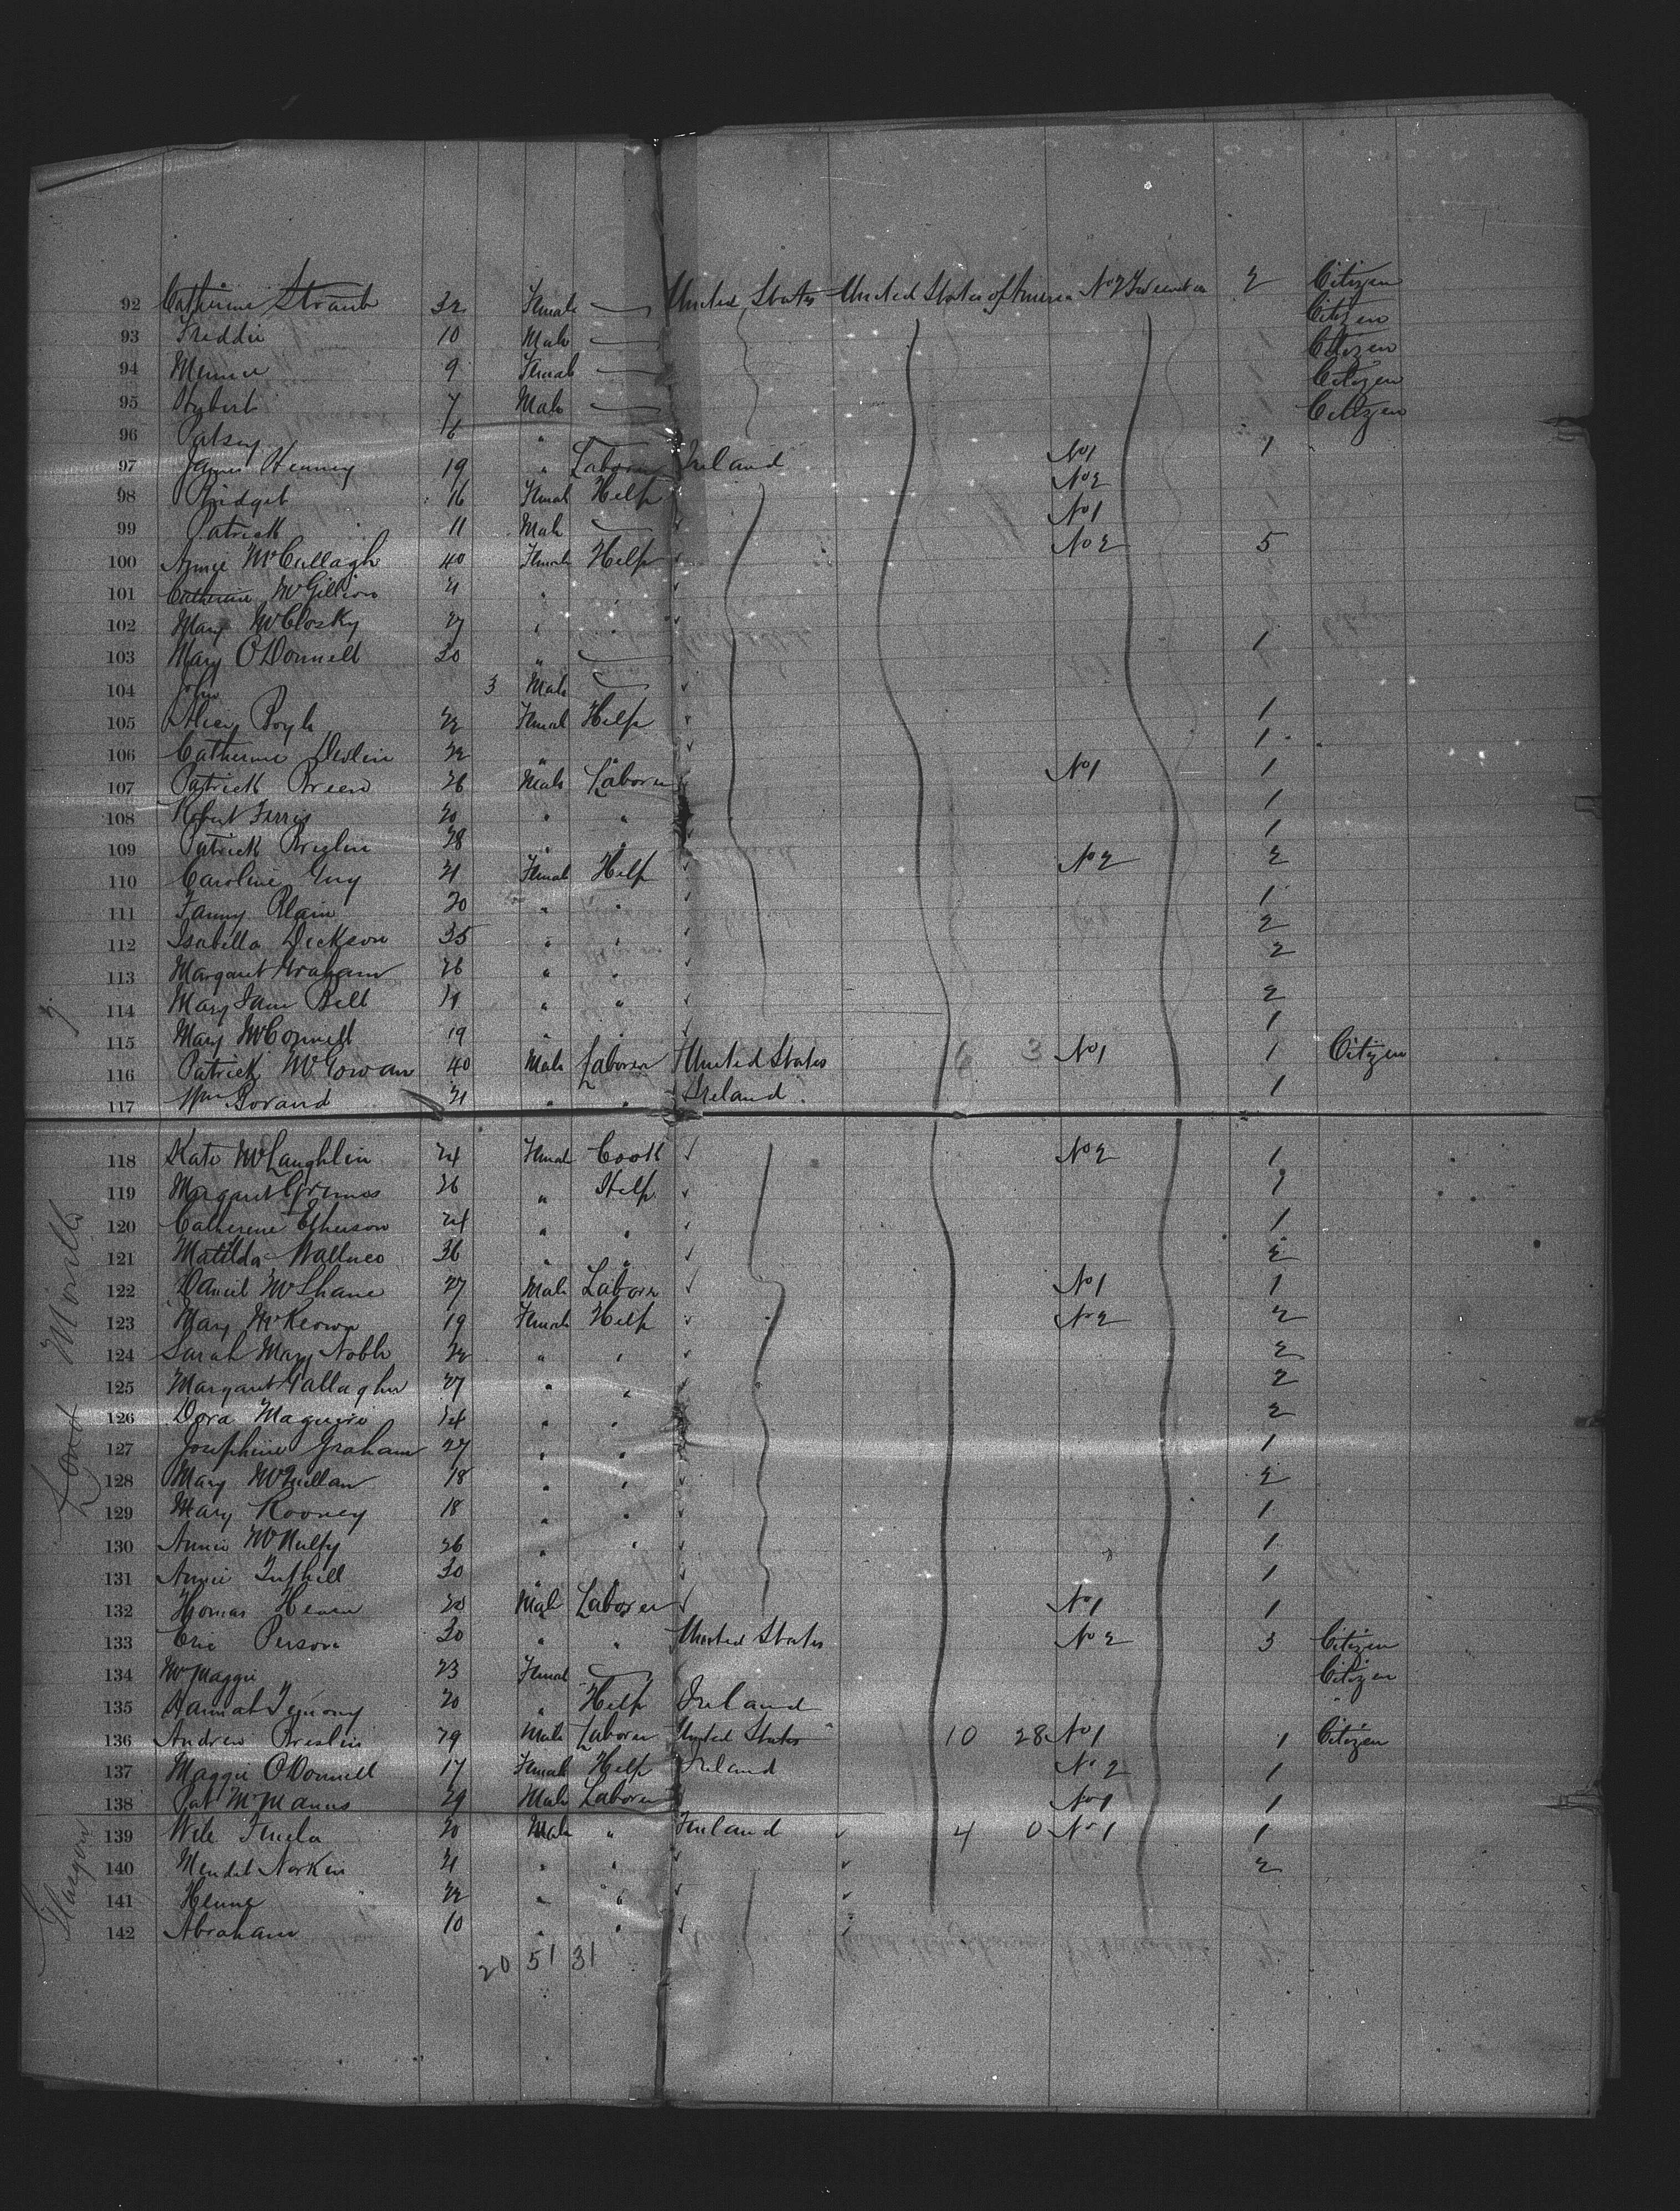 92 Catherine Straub 32 Female United States United States of America No 2 2 Citizen
93 Freddie 10 Male Citizen
94 Minnie 9 Female Citizen
95 7 Male Citizen
96 Patsey 6 " Citizen
97 James 19 " Laborer Ireland No 1 1
98 Bridget 16 Female Help No 2
99 Patrick 11 Male No 1
100 Annie McCullagh 40 Female Help No 2 5
101 Catherine McGillion 21 " "
102 Mary McClosky 27 " "
103 Mary O'Donnell 30 " 1
104 John 3 Male
105 Boyle 22 Female Help 1
106 Catherine Devlin 22 " 1
107 Patrick Breen 26 Male Laborer No 1 1
108 Robert Ferris 20 " " 1
109 Patrick Breslin 28 " " 1
110 Caroline Guy 21 Female Help No 2 2
111 Fanny Blair 20 " " 1
112 Isabella Dickson 35 " " 2
113 Margaret Graham 26 " " 2
114 Mary Jane Bell " " 2
115 Mary McConnell 19 " " 1
116 Patrick McGowan 40 Male Laborer United States 6 3 No 1 1 Citizen
117 Wm 21 " " Ireland 1
118 Kate McLaughlin 24 Female Cook No 2 1
119 Margaret Grimes 26 " Help 1
120 Catherine 24 " " 1
121 Matilda Wallace 36 " " 2
122 Daniel McShane 27 Male Laborer No 1 1
123 Mary McKeown 19 Female Help No 2 2
124 Sarah Mary Noble 22 " " 2
125 Margaret Gallagher 27 " " 2
126 Dora Maguire 24 " " 2
127 Josephine Graham 27 " " 1
128 Mary McQuillan 18 " " 2
129 Mary Rooney 18 " " 1
130 Annie McNulty 26 " " 1
131 Annie Tuthill 30 " " 1
132 Thomas 20 Male Laborer No 1 1
133 Eric Person 30 " " United States No 2 3 Citizen
134 Maggie 23 Female Citizen
135 Hannah 20 " Help Ireland "
136 Andrew Breslin 29 Male Laborer United States 10 28 No 1 1 Citizen
137 Maggie O'Donnell 17 Female Help Ireland No 2 1
138 Pat McManus 29 Male Laborer No 1 1
139 20 Male " Finland 4 0 No 1 1
140 Mendel Norken 21 " " 2
141 22 " "
142 Abraham 10 " "
20 51 31